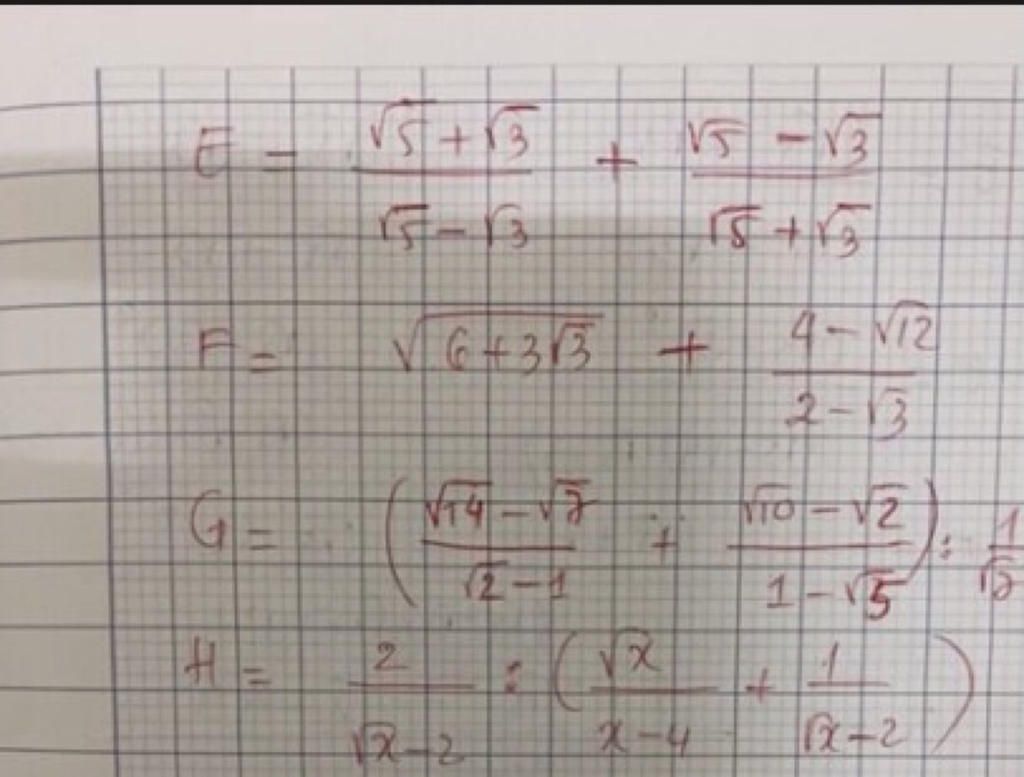 E = (√5 + √3)/(√5 - √3) + (√5 - √3)/(√5 + √3)
F = √(6 + 3√3) + (4 - √12)/(2 - √3)
G = ((√14 - √7)/(√2 - 1) + (√10 - √2)/(1 - √5)) : 1/
H = 2/(√x - 2) : (√x/(x - 4) + 1/(√x - 2))